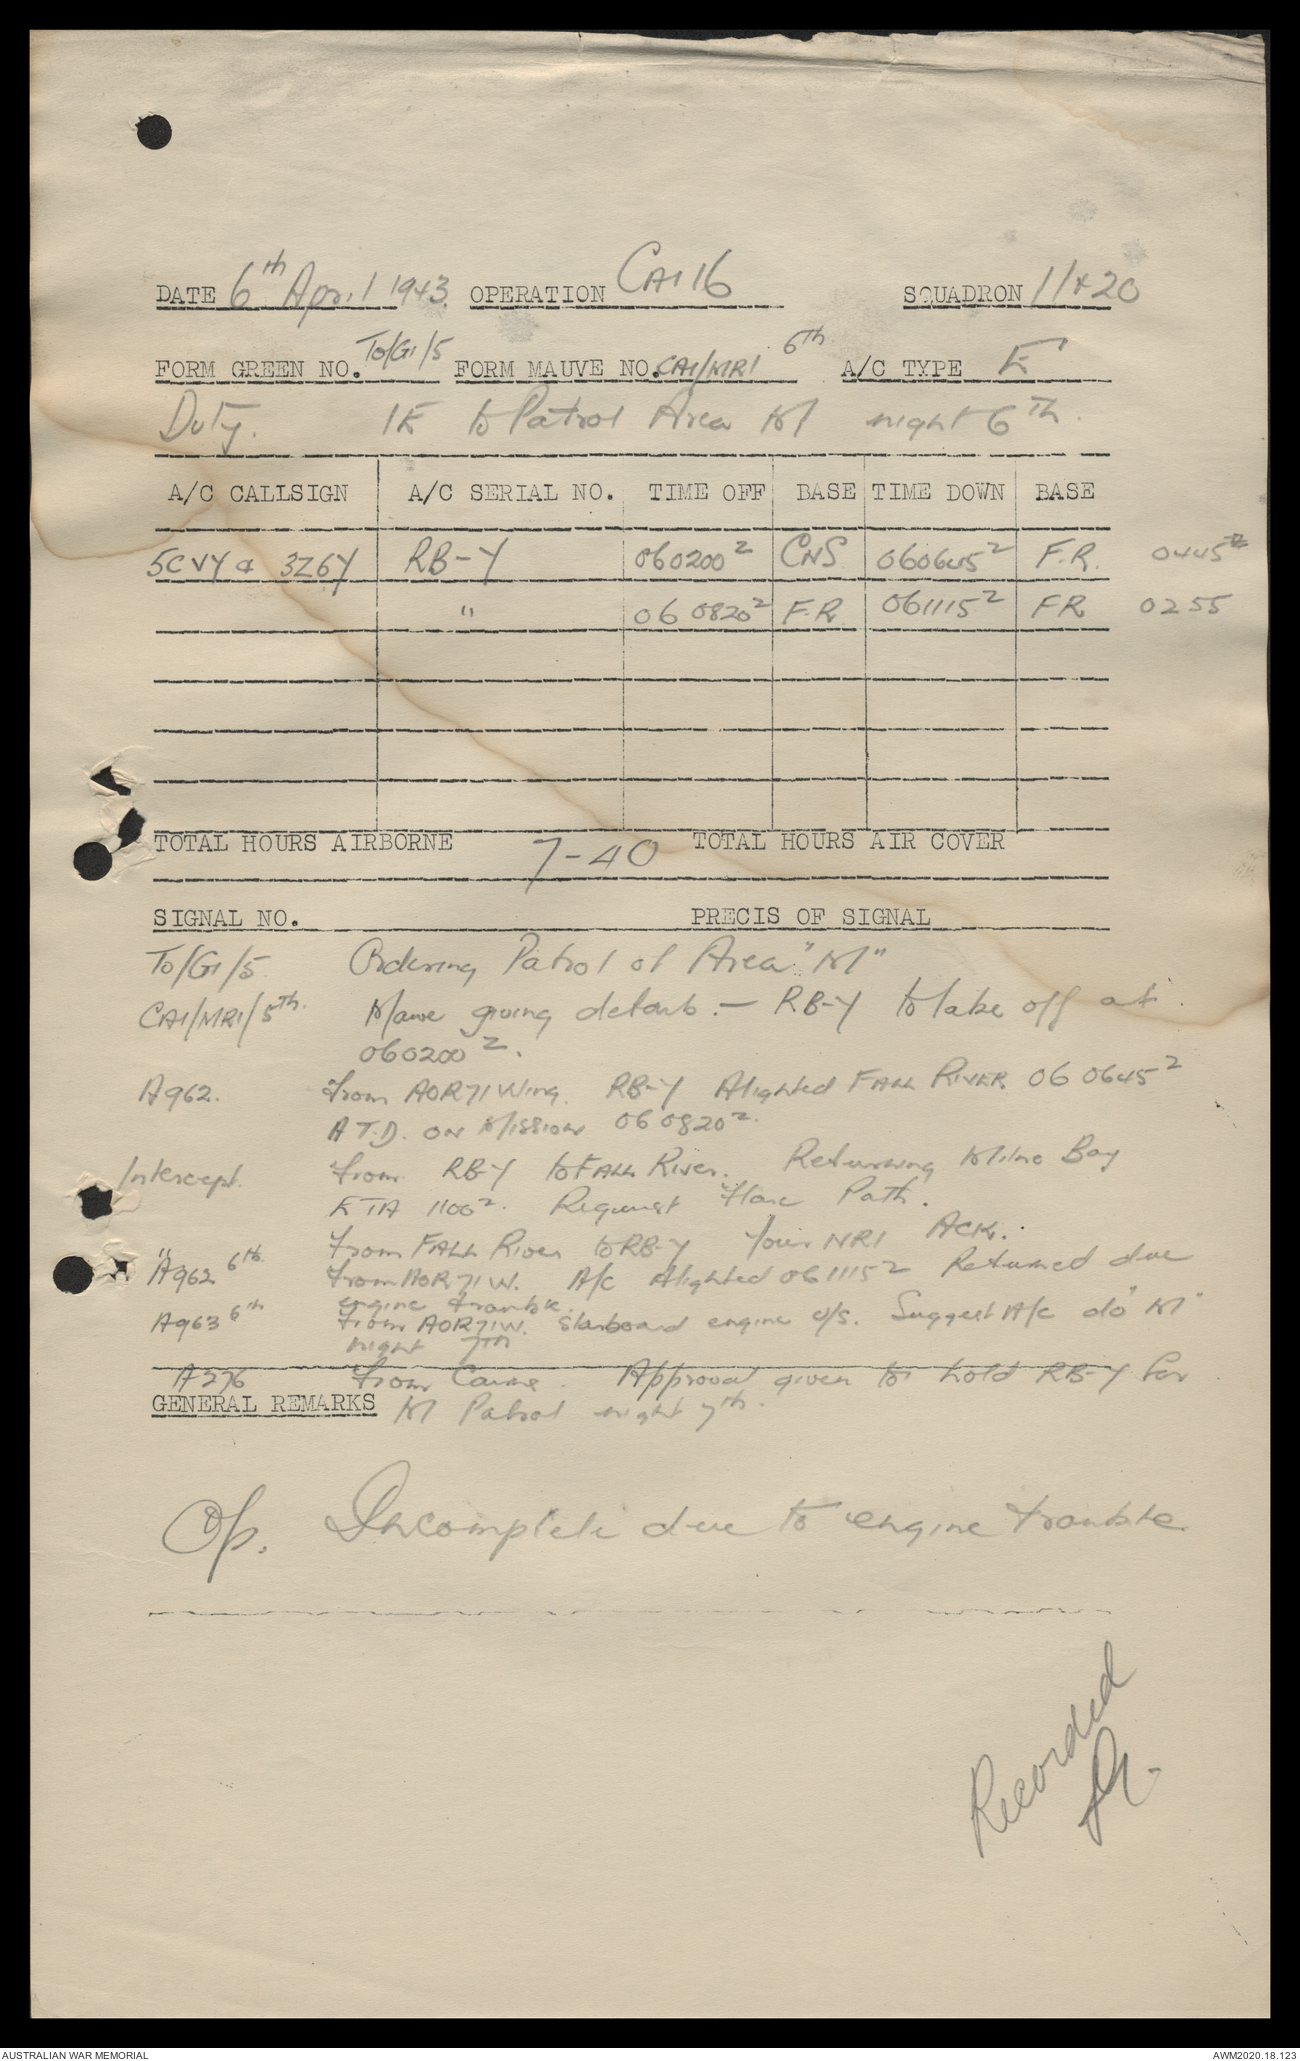 DATE 6th April 1943. OPERATION CA116 SQUADRON 11 & 20
FORM GREEN NO. To/G1/5 FORM MAUVE NO. CA1/MR1 6th A/C TYPE E
Duty. 1E to Patrol Area M night 6th.
A/C CALLSIGN A/C SERIAL NO. TIME OFF BASE TIME DOWN BASE
5CVY & 3Z6Y RB-Y 060200Z CNS 060645Z F.R. 0445
" 060820Z F.R. 061115Z FR 0255
TOTAL HOURS AIRBORNE 7-40 TOTAL HOURS AIR COVER
SIGNAL NO. PRECIS OF SIGNAL
To/G1/5. Ordering Patrol of Area "M"
CA1/MR1/5th. Mauve giving details. - RB-Y to take off at
060200Z.
A962. from AOR71 Wing. RB-Y Alighted FALL RIVER 060645Z
A.T.D. ON MISSION 060820Z.
Intercept. from RB-Y to FALL River. Returning Milne Bay
ETA 1100Z. Request Flare Path.
" from FALL River to RB-Y Your NR1 ACK.
A962 6th. from AOR71W. A/c Alighted 061115Z Returned due
engine trouble.
A963 6th from AOR71W. Starboard engine u/s. Suggest A/c do "M"
night 7th
A276 from Cairns. Approval given to hold RB-Y for
GENERAL REMARKS M Patrol night 7th.
Op. Incomplete due to engine trouble.
Recorded
AUSTRALIAN WAR MEMORIAL AWM2020.18.123